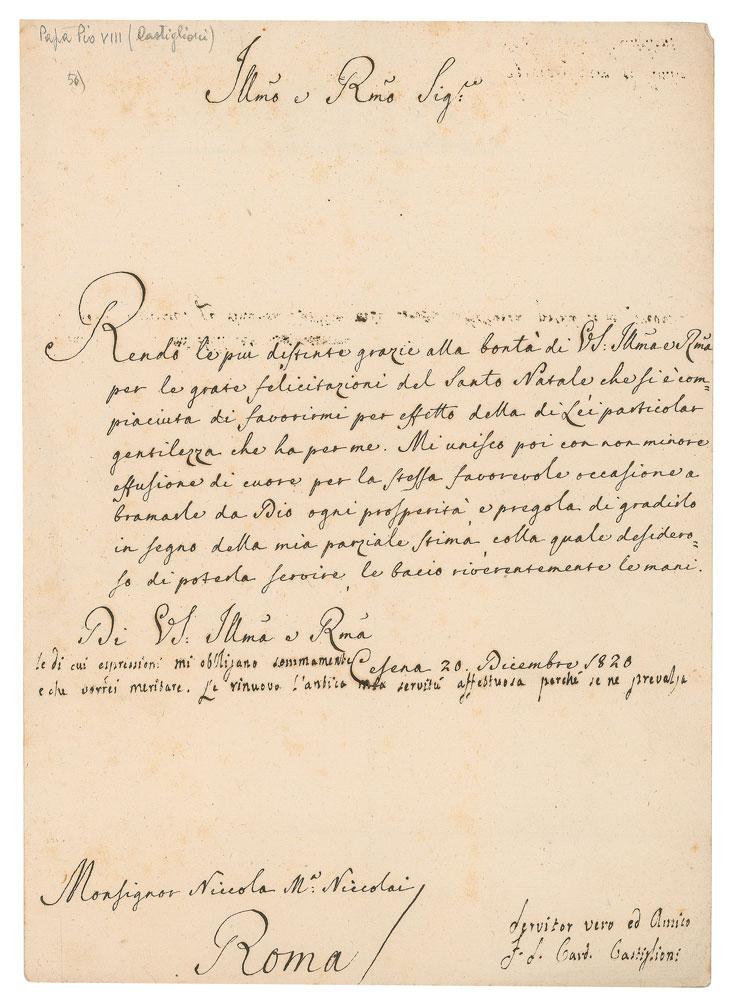 Papa Pio VIII (Castiglioni)
50)
Illmo e Rmo Sig:re
Rendo le piu distinte grazie alla bontà di VS: Illma e Rma
per le grate felicitazioni del Santo Natale che si è com=
piaciuta di favorirmi per effetto della di Lei particolar
gentilezza che ha per me. Mi unisco poi con non minore
effusione di cuore per la stessa favorevole occasione a
bramarle da Dio ogni prosperità e pregola di gradirlo
in segno della mia parziale stima colla quale desidero=
so di poterla servire, le bacio riverentemente le mani.
Di VS: Illma e Rma
le di cui espressioni mi obbligano sommamente Cesena 20. Dicembre 1820
e che vorrei meritare. Le rinuovo l'antica mia servitù affettuosa perché se ne prevalga
Monsignor Niccola Ma. Niccolai
Roma
Servitor vero ed Amico
F. S. Card. Castiglioni